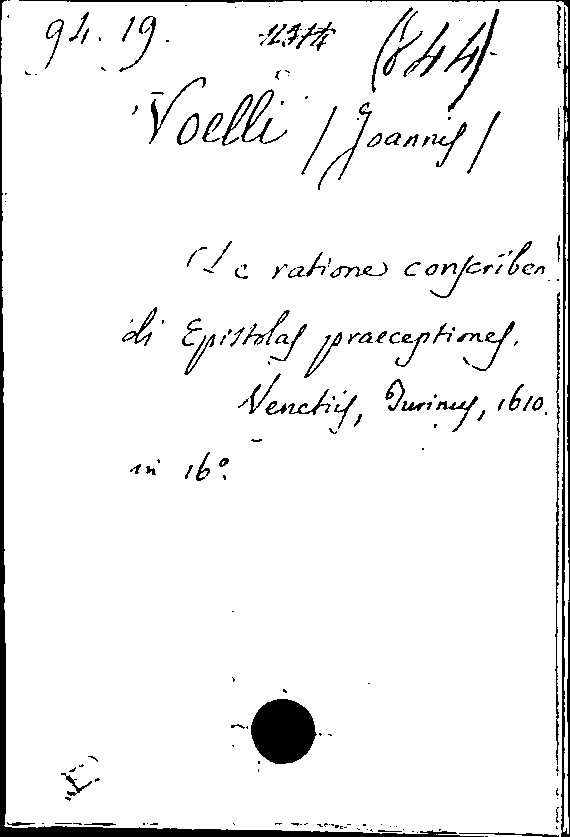 94.19. (844)
Voelli / Joannis /
De ratione conscriben
di Epistolas praeceptiones.
Venetiis, Turinus, 1610.
in 16º.